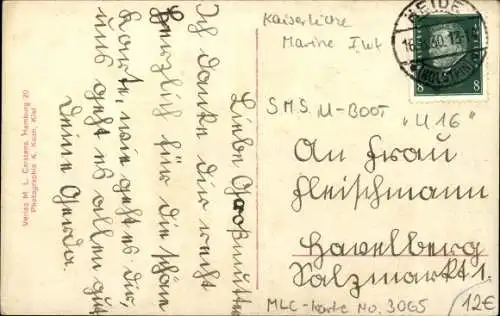 Liebe Großmutter
Ich danke dir recht
herzlich für die schöne
Karte, wie geht es dir,
uns geht es allen gut
Deine Gerda.
Verlag M. L. Carstens, Hamburg 20
Photographie K. Kaorn, Kiel
Kaiserliche
Marine I. Wk
S.M.S. U-BOOT
"U 16"
HEIDE
(HOLSTEIN)
8 8
An Frau
Fleischmann
Havelberg
Salzmarkt 1.
MLC-Karte No. 3065
12€